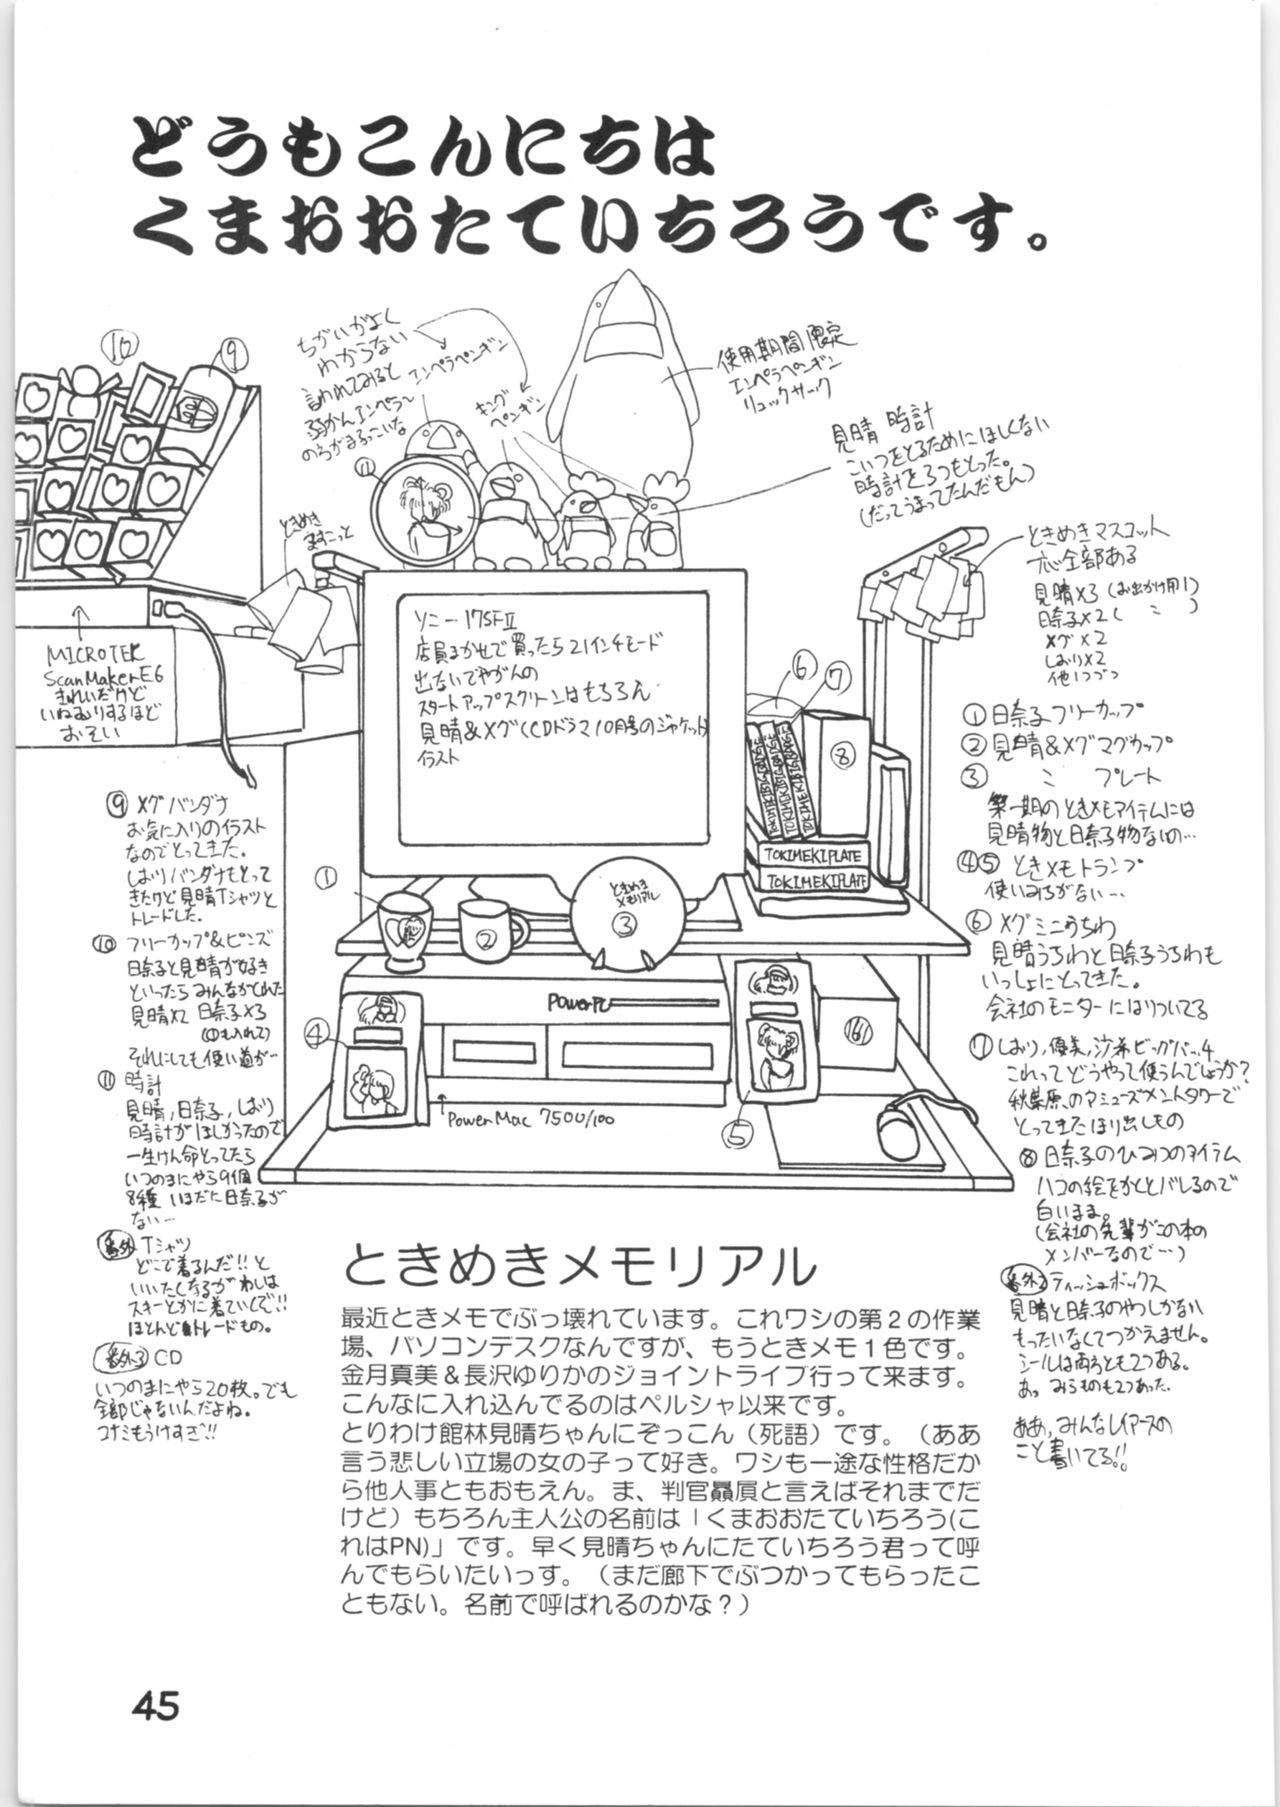 どうもこんにちは
くまおおたていちろうです。
ちがいがよく
わからない
言われてみると
若かんエンペラー
のろがまるっこいな
エンペラペンギン
キング
ペンギン
使用期間限定
エンペラペンギン
リュックサック
見晴 時計
こいつをとるためにほしくない
時計を3つもとった。
(だってうまってたんだもん)
⑩
⑨
⑪
ときめき
ますこっと
ときめきマスコット
見晴×3(お出かけ用1)
日奈子×2(〃)
メグ×2
しおり×2
他1つづつ
MICROTEK
ScanMakerE6
きれいだけど
いねむりするほど
おそい
ソニー17SFⅡ
店員まかせで買ったら21インチモード
出ないでやがんの
スタートアップスクリーンはもちろん
見晴&メグ(CDドラマ10月号のジャケット)
イラスト
⑥
⑦
⑧
TOKIMEKIPLATE
TOKIMEKIPLATE
①
②
ときめき
メモリアル
③
PowerPC
④
⑤
PowerMac 7500/100
①日奈子フリーカップ
②見晴&メグマグカップ
③ 〃 プレート
第一期のときメモアイテムには
見晴物と日奈子物ないの…
④⑤ ときメモトランプ
使いみちがない…
⑥ メグミニうちわ
見晴うちわと日奈子うちわも
いっしょにとってきた。
会社のモニターにはりついてる
⑦しおり,優美,沙希ビッグバッチ
これってどうやって使うんでしょうか?
秋葉原のアミューズメントタワーで
とってきたほり出しもの
⑧ 日奈子のひみつのアイテム
ハコの絵をかくとバレるので
白いまま。
(会社の先輩がこの本の
メンバーなので…)
番外2 ティッシュボックス
見晴と日奈子のやつしかない
もったいなくてつかえません。
シールは両方とも2つある。
ああ,みんなレイアースの
こと書いてる!!
⑨ メグバンダナ
お気に入りのイラスト
なのでとってきた。
しおりバンダナもとって
きたけど見晴Tシャツと
トレードした。
⑩ フリーカップ&ピンズ
日奈子と見晴が好き
といったらみんながくれた
見晴×2 日奈子×3
(①も入れて)
それにしても使い道が…
⑪ 時計
見晴,日奈子,しおり
時計がほしかったので
一生けん命とってたら
いつのまにやら9個
8種 いまだに日奈子が
ない…
番外 Tシャツ
どこで着るんだ!!と
いいたくなるがわしは
スキーとかに着ていくで!!
ほとんどトレードもの。
番外3 CD
いつのまにやら20枚。でも
全部じゃないんだよね。
コナミもうけすぎ!!
ときめきメモリアル
最近ときメモでぶっ壊れています。これワシの第2の作業
場、パソコンデスクなんですが、もうときメモ1色です。
金月真美&長沢ゆりかのジョイントライブ行って来ます。
こんなに入れ込んでるのはペルシャ以来です。
とりわけ館林見晴ちゃんにぞっこん(死語)です。(ああ
言う悲しい立場の女の子って好き。ワシも一途な性格だか
ら他人事ともおもえん。ま、判官贔屓と言えばそれまでだ
けど)もちろん主人公の名前は「くまおおたていちろう(こ
れはPN)」です。早く見晴ちゃんにたていちろう君って呼
んでもらいたいっす。(まだ廊下でぶつかってもらったこ
ともない。名前で呼ばれるのかな?)
45